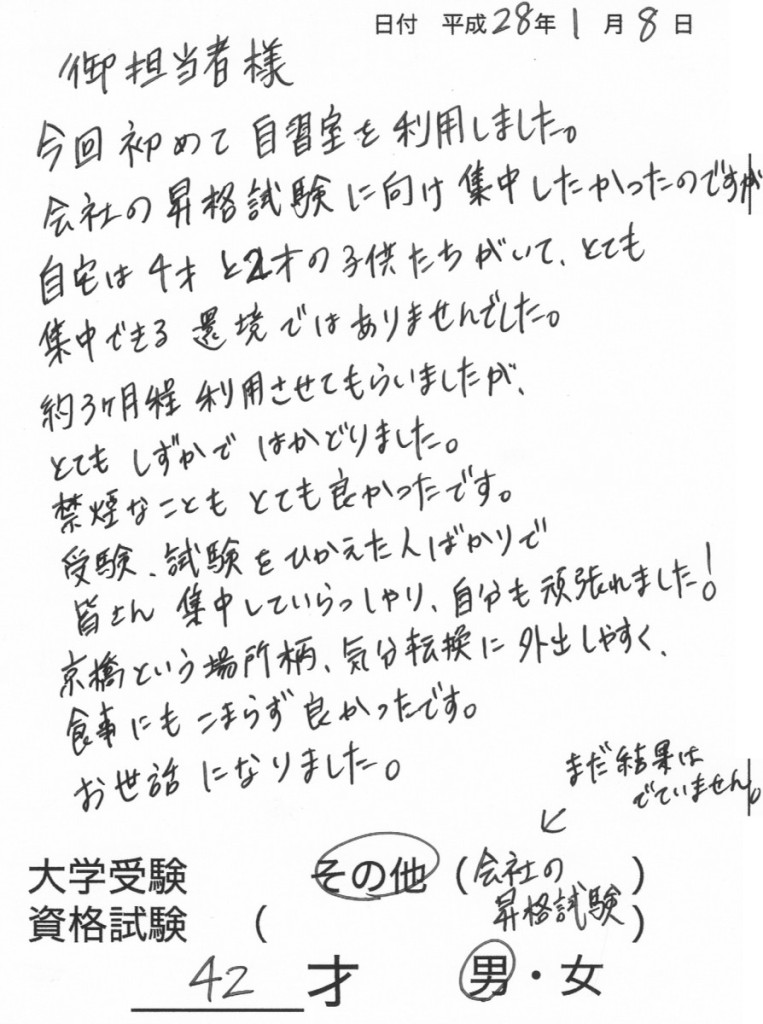 日付 平成28年1月8日
御担当者様
今回初めて自習室を利用しました。
会社の昇格試験に向け集中したかったのですが
自宅は4才と2才の子供たちがいて、とても
集中できる環境ではありませんでした。
約3ヶ月程利用させてもらいましたが、
とてもしずかではかどりました。
禁煙なこともとても良かったです。
受験、試験をひかえた人ばかりで
皆さん集中していらっしゃり、自分も頑張れました!
京橋という場所柄、気分転換に外出しやすく、
食事にもこまらず良かったです。
お世話になりました。
まだ結果は
でていません。
大学受験 その他(会社の
昇格試験)
資格試験 ( )
42才 男・女